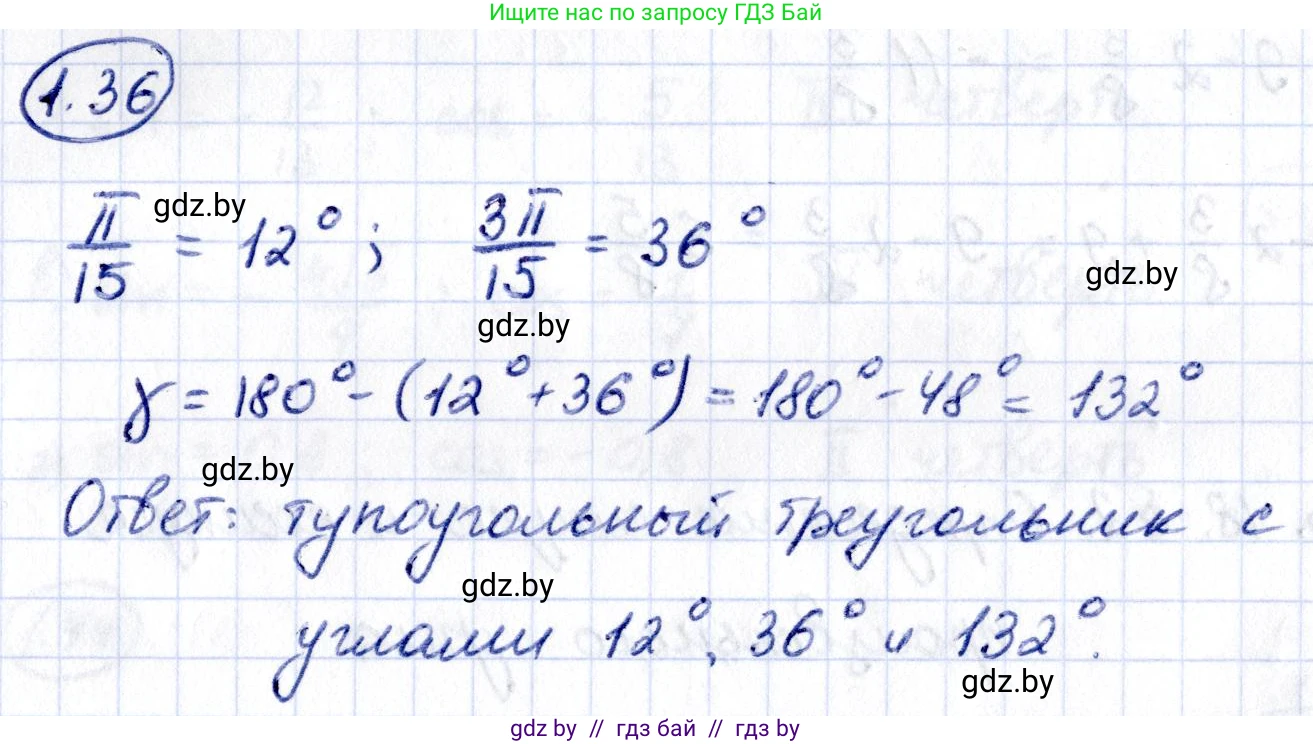 Ищите нас по запросу ГДЗ Бай
1.36
π/15 = 12°; 3π/15 = 36°
gdz.by
gdz.by
gdz.by
γ = 180° - (12° + 36°) = 180° - 48° = 132°
gdz.by
Ответ: тупоугольный треугольник с
gdz.by
углами 12°, 36° и 132°.
gdz.by
gdz.by // гдз бай // gdz.by